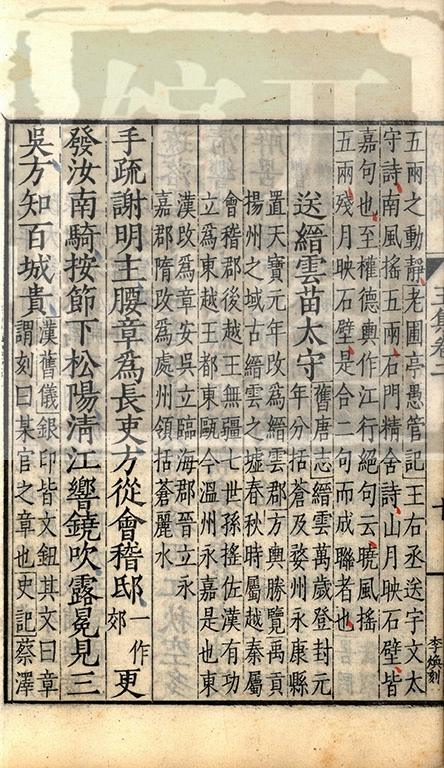 五兩之動靜老圃亭愚管記王右丞送宇文太
守詩南風搖五兩石門精舍詩山月映石壁皆
嘉句也至權德輿作江行絕句云曉風搖
五兩殘月映石壁是合二句而成聯者也
送縉雲苗太守
舊唐志縉雲萬歲登封元
年分括蒼及婺州永康縣
置天寶元年改為縉雲郡方輿勝覽禹貢
揚州之域古縉雲之墟春秋時屬越秦屬
會稽郡後越王無疆七世孫搖佐漢有功
立爲東越王都東甌今溫州永嘉是也東
漢改爲章安吳立臨海郡晉立永
嘉郡隋改爲處州領括蒼麗水
手疏謝明主腰章爲長吏方從會稽邸一作郊更
發汝南騎按節下松陽清江響鐃吹露冕見三
吳方知百城貴
漢舊儀銀印皆文鈕其文曰章
謂刻曰某官之章也史記蔡澤
李煥刻